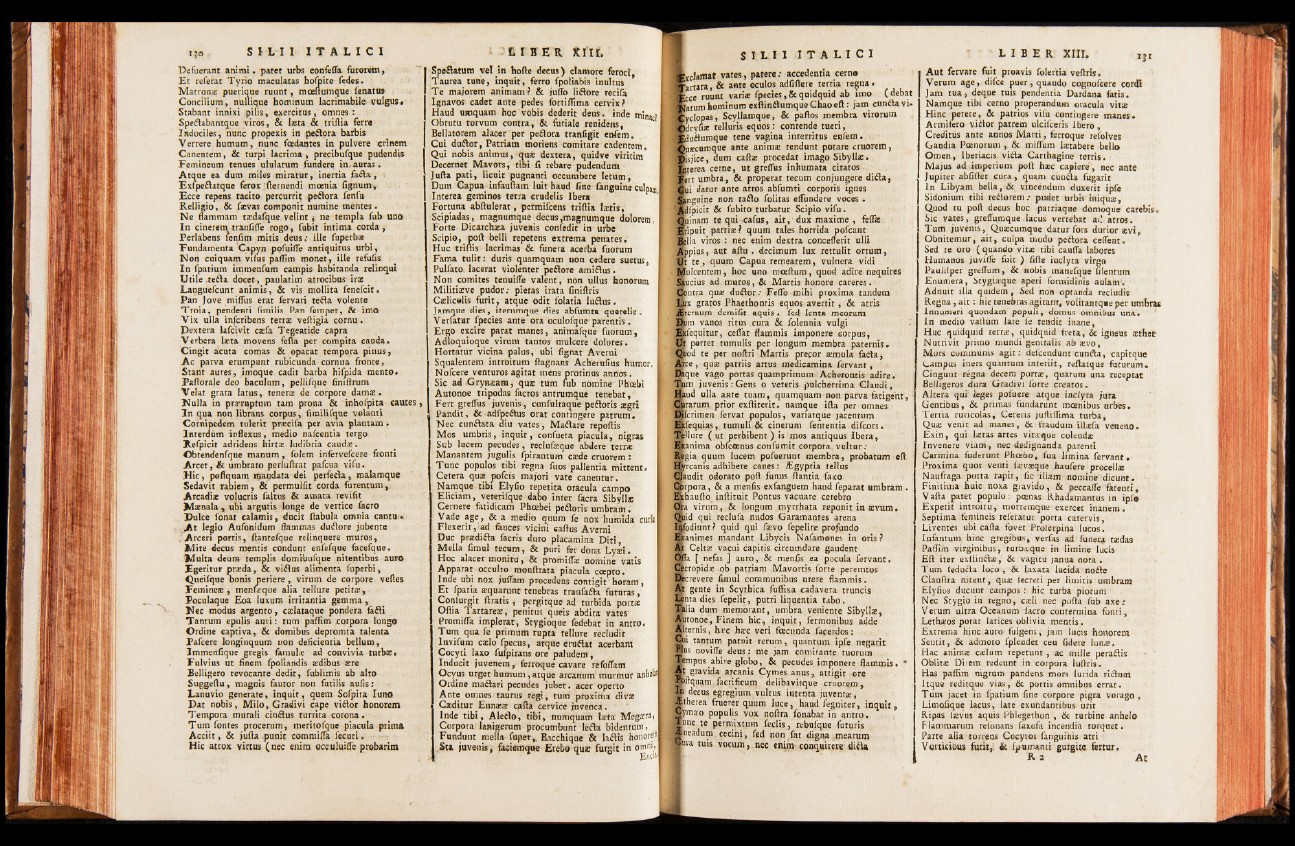 130 SILII ITALICI
Defuerant animi. patet urbs confessa furorem,
Et reserat Tyrio maculatas hospite sedes.
Matronæ puerique ruunt, mœstumque senatus
Concilium, nullique hominum lacrimabile vulgus.
Stabant innixi pilis, exercitus, omnes:
Spectabantque viros, & læta & tristia ferre
Indociles, nunc propexis in pectora barbis
Verrere humum, nunc fœdantes in pulvere crinem
Canentem, & turpi lacrima, precibusque pudendis
Femineum tenues ululatum fundere in auras.
Atque ea dum miles miratur, inertia facta,
Exspectatque ferox sternendi mœnia signum,
Ecce repens tacito percurrit pectora sensu
Relligio, & sævas componit numine mentes.
Ne flammam tædasque velint, ne templa sub uno
In cinerem transisse rogo, subit intima corda,
Perlabens sensim mitis deus: ille superbæ
Fundamenta Capyn posuisse antiquitus urbi,
Non cuiquam visus passim monet, ille refusis
In spatium immensum campis habitanda relinqui
Utile tecta docet, paulatim atrocibus iræ
Languescunt animis, & vis mollita senescit.
Pan Jove missus erat servari tecta volente
Troia, pendenti similis Pan semper, & imo
Vix ulla inscribens terræ vestigia cornu.
Dextera lascivit cæsa Tegeatide capra
Verbera læta movens festa per compita cauda.
Cingit acuta comas & opacat tempora pinus,
Ac parva erumpunt rubicunda cornua fronte.
Stant aures, imoque cadit barba hispida mento.
Pastorale deo baculum, pellisque sinistrum
Velat grata latus, teneræ de corpore damæ.
Nulla in præruptum tam prona & inhospita cautes,
In qua non librans corpus, similisque volanti
Cornipedem tulerit præcisa per avia plantam.
Interdum inflexus, medio nascentia tergo
Respicit adridens hirtæ ludibria caudæ.
Obtendensque manum, solem infervescere fronti
Arcet, & umbrato perlustrat pascua visu.
Hic, postquam mandata dei perfecta, malamque
Sedavit rabiem, & permulsit corda furentum,
Arcadiæ volucris saltus & amata revisit
Mænala, ubi argutis longe de vertice sacro
Dulce sonat calamis, ducit stabula omnia cantu.
At legio Ausonidum flammas ductore jubente
Arceri portis, stantesque relinquere muros,
Mite decus mentis condunt ensesque facesque.
Multa deum templis domibusque nitentibus auro
Egeritur præda, & victus alimenta superbi,
Queisque bonis periere, virum de corpore vestes
Femineæ, mensæque alia tellure petitæ,
Poculaque Eoa luxum irritantia gemma,
Nec modus argento, cælataque pondera facti
Tantum epulis auri: tum passim corpora longo
Ordine captiva, & domibus depromta talenta
Pascere longinquum non deficientia bellum,
Immensique gregis famulæ ad convivia turbæ.
Fulvius ut finem spoliandis ædibus ære
Belligero revocante dedit, sublimis ab alto
Suggestu, magnis fautor non futilis ausis:
Lanuvio generate, inquit, quem Sospita Iuno
Dat nobis, Milo, Gradivi cape victor honorem
Tempora murali cinctus turrita corona.
Tum sontes procerum, meritosque piacula prima
Acciit, & justa punit commissa securi.
Hic atrox virtus (nec enim occuluisse probarim
LIBER XIII.
Spectatum vel in hoste decus) clamore feroci,
Taurea tune, inquit, ferro spoliabis inultus
Te majorem animam? & jusso lictore recisa
Ignavos cadet ante pedes fortissima cervix?
Haud umquam hoc vobis dederit deus. inde minaci
Obrutu torvum contra, & furiale renidens,
Bellatorem alacer per pectora transigit ensem.
Cui ductor, Patriam moriens comitare cadentem.
Qui nobis animus, quæ dextera, quidve viritim
Decernet Mavors, tibi si rebare pudendum
Justa pati, licuit pugnanti occumbere letum,
Dum Capua infaustam luit haud sine sanguine culpam,
Interea geminos terra crudelis Ibera
Fortuna abstulerat, permiscens tristia lætis,
Scipiadas, magnumque decus, magnumque dolorem.
Forte Dicarchæa juvenis consedit in urbe
Scipio, post belli repetens extrema penates.
Huc tristis lacrimas & funera acerba suorum
Fama tulit: duris quamquam non cedere suetus,
Pulsato lacerat violenter pectore amictus.
Non comites tenuisse valent, non ullus honorum
Militiæve pudor: pietas irata sinistris
Cælicolis furit, atque odit solatia luctus.
Jamque dies, iterumque dies absumta querelis.
Versatur species ante ora oculosque parentis.
Ergo excire parat manes, animasque suorum,
Adloquioque virum tantos mulcere dolores.
Hortatur vicina palus, ubi signat Averni
Squalentem introitum stagnans Acherusius humor.
Noscere venturos agitat mens protinus annos.
Sic ad Grynæam, quæ tum sub nomine Phœbi
Autonoe tripodas sacros antrumque tenebat,
Fert gressus juvenis, consultaque pectoris ægri
Pandit, & adspectus orat contingere patrum.
Nec cunctata diu vates, Mactare repostis
Mos umbris, inquit, consueta piacula, nigras
Sub lucem pecudes, reclusæque abdere terræ
Manantem jugulis spirantum cæde cruorem:
Tunc populos tibi regna suos pallentia mittent.
Cetera quæ poscis majori vate canentur.
Namque tibi Elysio repetita oracula campo
Eliciam, veterisque dabo inter sacra Sibyllæ
Cernere fatidicam Phœbei pectoris umbram.
Vade age, & a medio quum se nox humida cursu
Flexerit, ad fauces vicini castus Averni
Duc prædicta sacris duro placamina Diti,
Mella simul tecum, & puri fer dona Lyæi.
Hoc alacer monitu, & promissæ nomine vatis
Apparat occulto monstrata piacula cœpto.
Inde ubi nox jussam procedens contigit horam,
Et spatia æquarunt tenebras transacta futuras,
Consurgit stratis, pergitque ad turbida portæ
Ostia Tartareæ, penitus queis abdita vates
Promissa implerat, Stygioque sedebat in antro.
Tum qua se primum rupta tellure recludit
Invisum cælo specus, atque eructat acerbam
Cocyti laxo suspirans ore paludem,
Inducit juvenem, ferroque cavare refossam
Ocyus urget humum, atque arcanum murmur anhelans
Ordine mactari pecudes jubet. acer operto
Ante omnes taurus regi, tum proxima divæ
Cæditur Ennææ casta cervice juvenca.
Inde tibi, Alecto, tibi, numquam læta Megæra,
Corpora lanigerum procumbunt lecta bidentum,
Fundunt mella super, Bacchique & lactis honorem
Sta juvenis, faciemque Erebo quæ surgit in omni,
SILII ITALICI
Exclamat vates, patere: accedentia cerno
Tartara, & ante oculos adsistere tertia regna.
Ecce ruunt variæ species, & quidquid ab imo (debat
Natum hominum exstinctumque Chao est: jam cuncta vi-
Cyclopas, Scyllamque, & pastos membra virorum
Odrysiæ telluris equos: contende tueri,
Eductumque tene vagina interritus ensem.
Quæcumque ante animæ tendunt potare cruorem,
Disjice, dum castæ procedat imago Sibyllæ.
Interea cerne, ut gressus inhumata citatos
Fert umbra, & properat tecum conjungere dicta,
Cui datur ante atros absumti corporis ignes
Sanguine non tacto solitas effundere voces.
Adspicit & subito turbatur Scipio visu.
Quinam te qui casus, ait, dux maxime, fessæ
Eripuit patriæ? quum tales horrida poscant
Bella viros: nec enim dextra concesserit ulli
Appius, aut astu. decimum lux rettulit ortum,
Ut te, quum Capua remearem, vulnera vidi
Mulcentem, hoc uno mœstum, quod adire nequires
Saucius ad muros, & Martis honore careres.
Contra quæ ductor: Fesso mihi proxima tandem
Lux gratos Phaethontis equos avertit, & atris
Æternum demisit aquis. sed lenta meorum
Dum vanos ritus cura & solennia vulgi
Exsequitur, cessat flammis imponere corpus,
Ut portet tumulis per longum membra paternis.
Quod te per nostri Martis precor æmula facta,
Arce, quæ patriis artus medicamina servant,
Daque vago portas quamprimum Acherontis adire.
Tum juvenis: Gens o veteris pulcherrima Clausi,
Haud ulla ante tuam, quamquam non parva fatigent,
Curarum prior exstiterit. namque ista per omnes
Discrimen servat populos, variatque jacentum
Exsequias, tumuli & cinerum sententia discors.
Tellure (ut perhibent) is mos antiquus Ibera,
Exanima obscœnus consumit corpora vultur:
Regia quum lucem posuerunt membra, probatum est
Hyrcanis adhibere canes: Ægyptia tellus
Claudit odorato post funus stantia saxo
Corpora, & a mensis exsanguem haud separat umbram.
Exhausto instituit Pontus vacuare cerebro
Ora virum, & longum myrrhata reponit in ævum.
Quid qui reclusa nudos Garamantes arena
Infodiunt? quid qui sævo sepelire profundo
Exanimes mandant Libycis Nasamones in oris?
At Celtæ vacui capitis circumdare gaudent
Ossa [ nefas ] auro, & mensis ea pocula servant.
Cecropidæ ob patriam Mavortis sorte peremtos
Decrevere simul communibus urere flammis.
At gente in Scythica suffixa cadavera truncis
Lenta dies sepelit, putri liquentia tabo.
Talia dum memorant, umbra veniente Sibyllæ,
Autonoe, Finem hic, inquit, sermonibus adde
Alternis, hæc hæc veri fœcunda sacerdos:
Cui tantum patuit rerum, quantum ipse negarit
Plus novisse deus: me jam comitante tuorum
Tempus abire globo, & pecudes imponere flammis.
At gravida arcanis Cymes anus, attigit ore
Postquam sacrificum delibavitque cruorem,
In decus egregium vultus intenta juventæ,
Ætherea fruerer quum luce, haud segniter, inquit,
Cymæo populis vox nostra sonabat in antro.
Tunc te permixtum seclis, rebusque futuris
Æneadum cecini, sed non sat digna mearum
Cura tuis vocum, nec enim conquirere dicta
LIBER XIII. 131
Aut servare fuit proavis solertia vestris.
Verum age, disce puer, quando cognoscere cordi
Jam tua, deque tuis pendentia Dardana fatis.
Namque tibi cerno properandum oracula vitæ
Hinc petere, & patrios visu contingere manes.
Armifero victor patrem ulcisceris Ibero,
Creditus ante annos Marti, ferroque resolves
Gaudia Pœnorum, & missum lætabere bello
Omen, Iberiacis victa Carthagine terris.
Majus ad imperium post hæc capiere, nec ante
Jupiter absistet cura, quam cuncta fugarit
In Libyam bella, & vincendum duxerit ipse
Sidonium tibi rectorem: pudet urbis iniquæ,
Quod tu post decus hoc patriaque domoque carebis.
Sic vates, gressumque lacus vertebat ad atros.
Tum juvenis, Quæcumque datur sors durior ævi,
Obnitemur, ait, culpa modo pectora cessent.
Sed te oro (quando vitæ tibi caussa labores
Humanos juvisse fuit) siste inclyta virgo
Paulisper gressum, & nobis manesque silentum
Enumera, Stygiæque aperi formidinis aulam.
Adnuit illa quidem, Sed non optanda recludis
Regna, ait: hic tenebras agitant, volitantque per umbras
Innumeri quondam populi, domus omnibus una.
In medio vastum late se tendit inane,
Huc quidquid terræ, quidquid freta, & igneus æther
Nutrivit primo mundi genitalis ab ævo,
Mors communis agit: descendunt cuncta, capitque
Campus iners quantum interiit, restatque futurum.
Cingunt regna decem portæ, quarum una receptat
Belligeros dura Gradivi sorte creatos.
Altera qui leges posuere atque inclyta jura
Gentibus, & primas fundarunt mœnibus urbes.
Tertia ruricolas, Cereris justissima turba,
Quæ venit ad manes, & fraudum illæsa veneno.
Exin, qui lætas artes vitæque colendæ
Invenere viam, nec dedignanda parenti
Carmina fuderunt Phœbo, sua limina servant.
Proxima quos venti sævæque hausere procellæ
Naufraga porta rapit, sic illam nomine dicunt.
Finitima huic noxa gravido, & peccasse fatenti,
Vasta patet populo: pœnas Rhadamantus in ipso
Expetit introitu, mortemque exercet inanem.
Septima femineis reseratur porta catervis,
Lirentes ubi casta fovet Proserpina lucos.
Infantum hinc gregibus, versas ad funera tædas
Passim virginibus, turbæque in limine lucis
Est iter exstinctæ, & vagitu janua nota.
Tum seducta loco, & laxata lucida nocte
Claustra nitent, quæ secreti per limitis umbram
Elysios ducunt campos: hic turba piorum
Nec Stygio in regno, cæli nec posta sub axe:
Verum ultra Oceanum sacro contermina fonti,
Lethæos potat latices oblivia mentis.
Extrema hinc auro fulgens, jam lucis honorem
Sentit, & admoto splendet ceu sidere lunæ.
Hac animæ cælum repetunt, ac mille peractis
Oblitæ Ditem redeunt in corpora lustris.
Has passim nigrum pandens mors lurida rictum
Itque reditque vias, & portis omnibus errat.
Tum jacet in spatium sine corpore pigra vorago,
Limosique lacus, late exundantibus urit
Ripas sævus aquis Phlegethon, & turbine anhelo
Flammarum resonans saxosa incendia torquet.
Parte alia torrens Cocytos sanguinis atri
Vorticibus furit, & spumanti gurgite fertur.
R 2 At